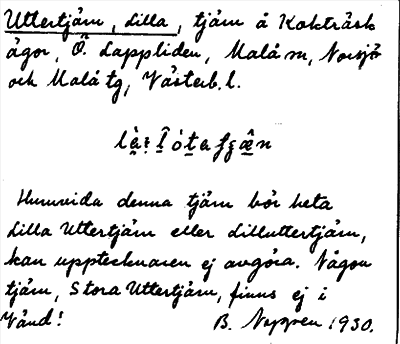 Uttertjärn, Lilla, tjärn å Kokträsk
ägor, Ö. Lappliden, Malå sn, Norsjö
och Malå tg, Västerb. l.
Huruvida denna tjärn bör heta
Lilla Uttertjärn eller Lilluttertjärn,
kan upptecknaren ej avgöra. Någon
tjärn, Stora Uttertjärn, finns ej i
Vänd!
B. Noppen 1930.